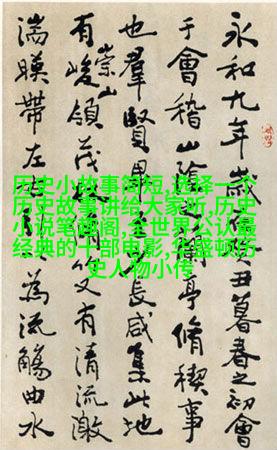 永和九年歲在癸丑暮春之初會
于會稽山陰之蘭亭脩稧事
也羣賢畢至少長咸集此地
有崇山峻領茂林脩竹又有清流激
湍暎帶左右引以為流觴曲水
历史小故事简短,选择一个
历史故事讲给大家听,历史
小说笔趣阁,全世界公认最
经典的一部电影,华盛顿历
史人物小传